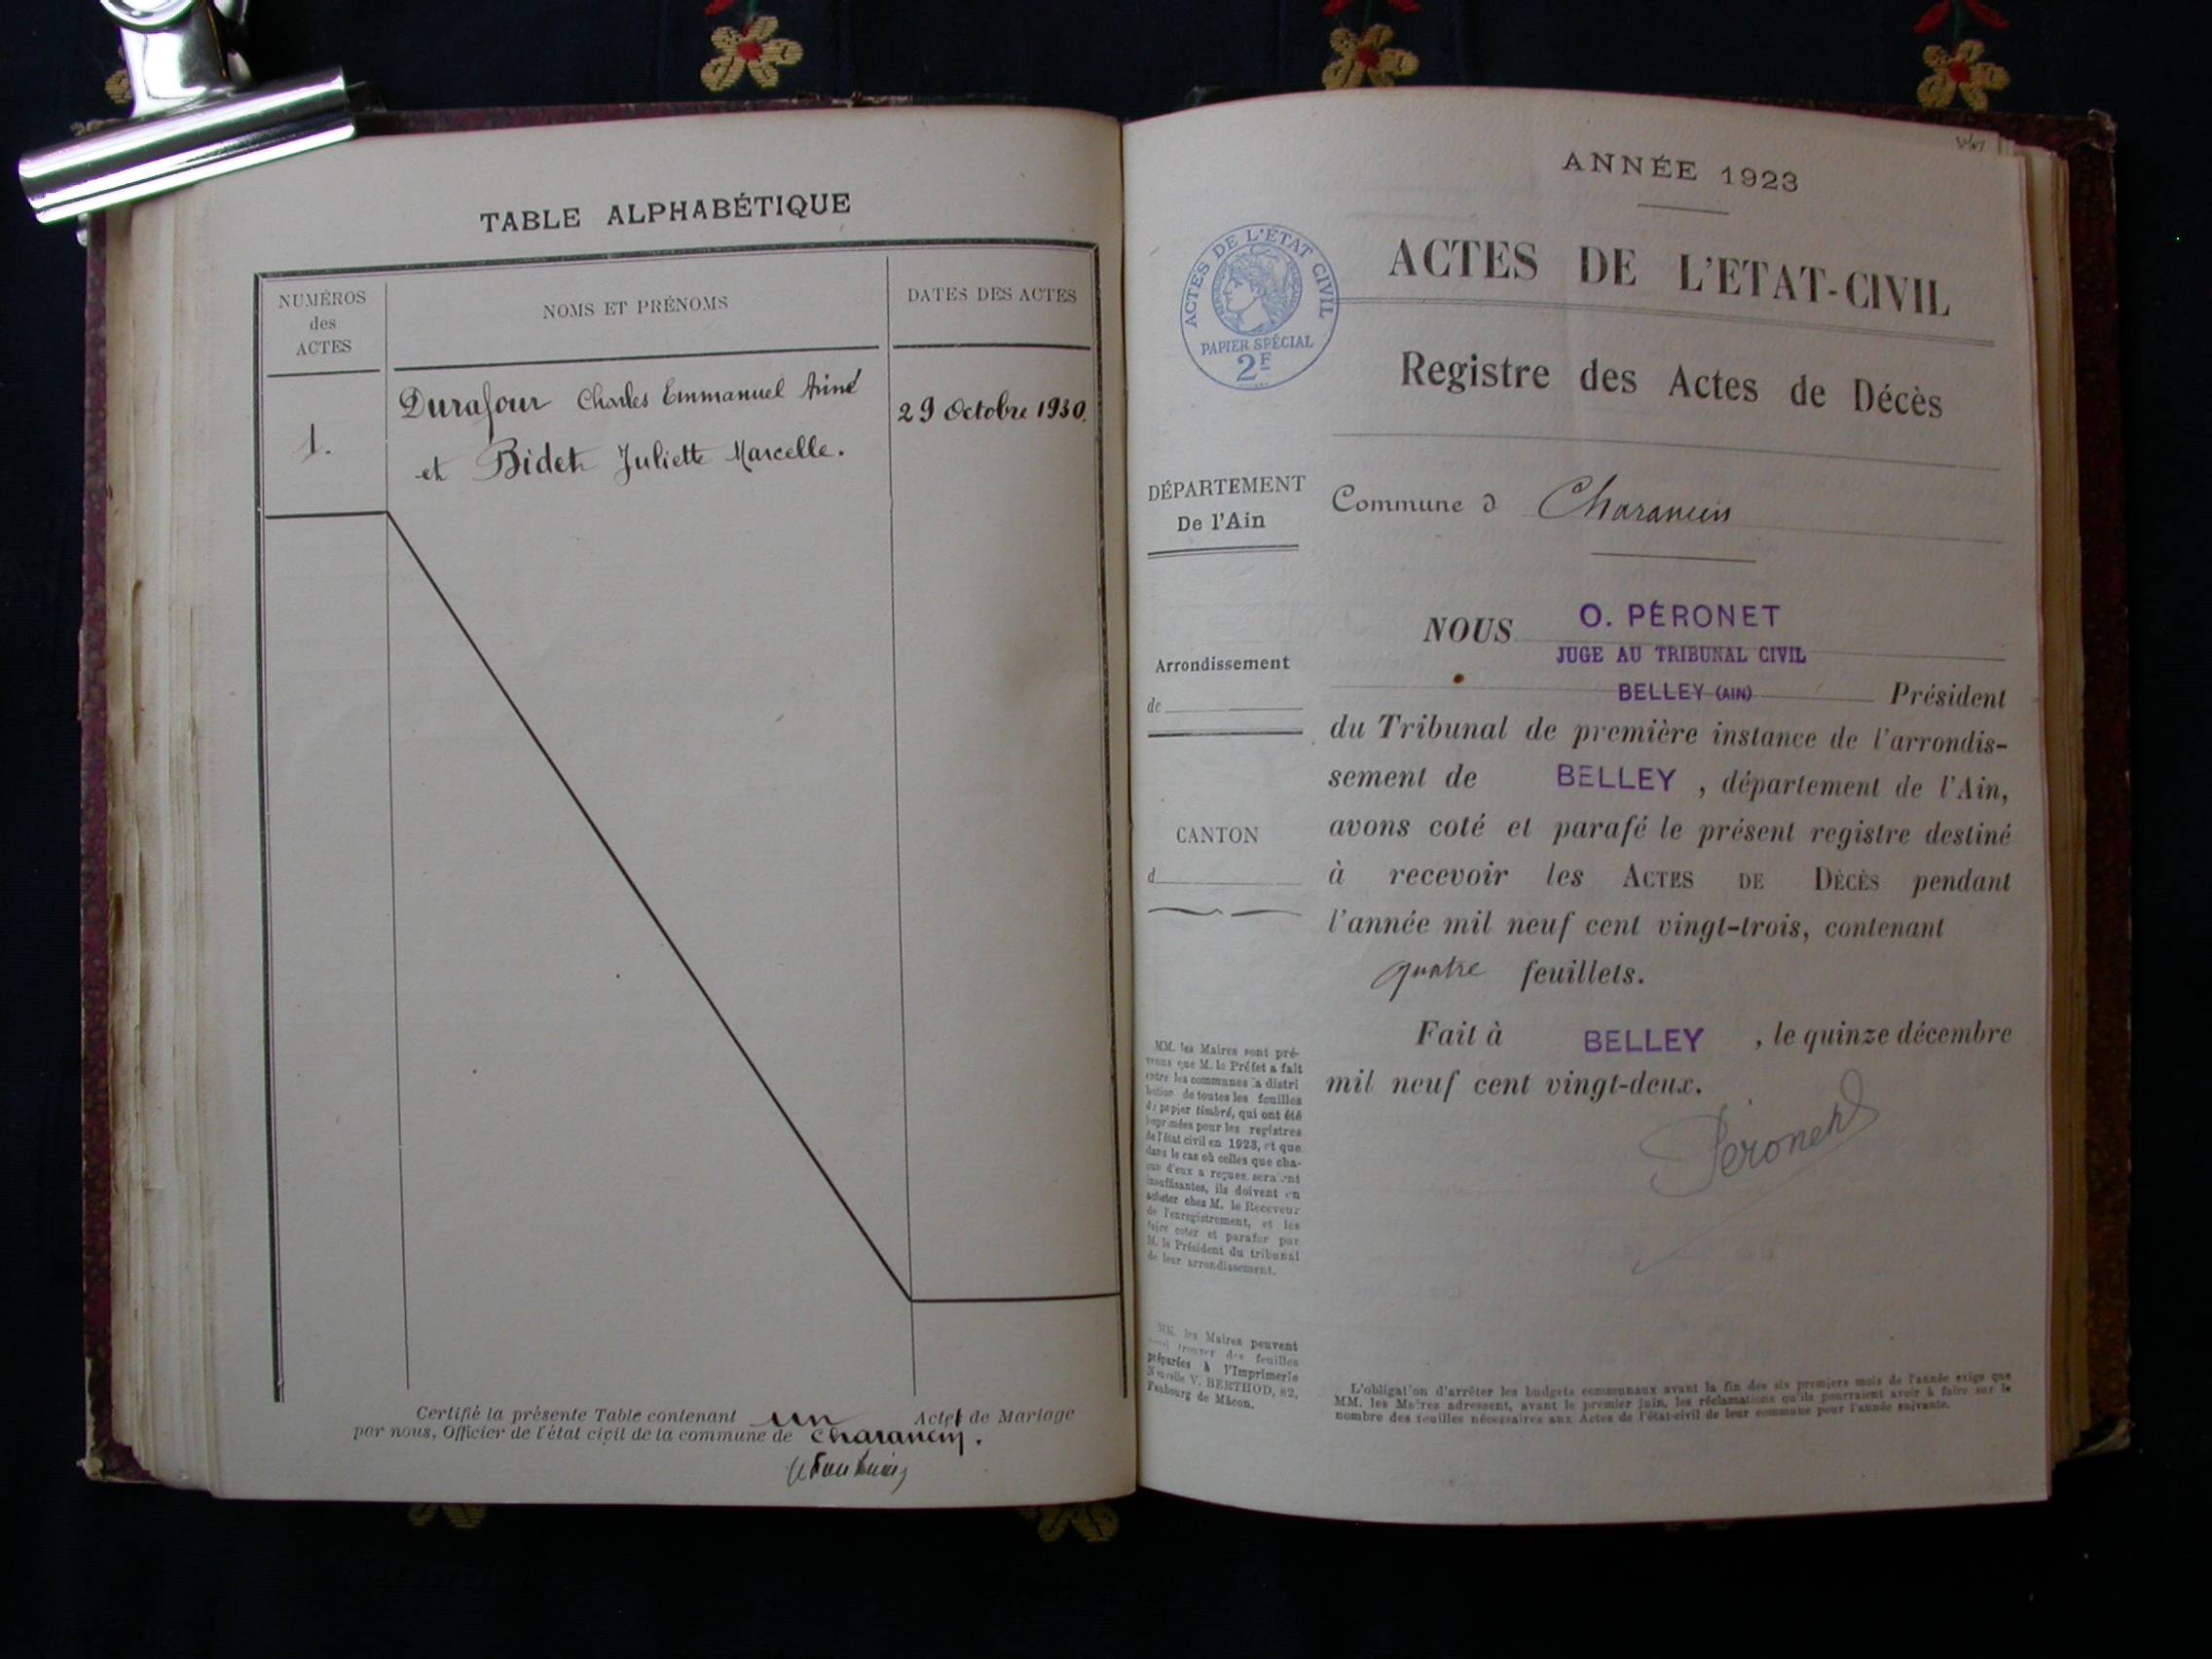 TABLE ALPHABÉTIQUE
NUMÉROS
des
ACTES
NOMS ET PRÉNOMS
DATES DES ACTES
1.
Durafour Charles Emmanuel Aimé
et Bidet Juliette Marcelle.
29 Octobre 1930.
Certifié la présente Table contenant un Actes de Mariage
par nous, Officier de l'état civil de la commune de Charancin.
ANNÉE 1923
ACTES DE L'ÉTAT CIVIL
PAPIER SPÉCIAL
2F
ACTES DE L'ETAT-CIVIL
Registre des Actes de Décès
DÉPARTEMENT
De l'Ain
Commune d Charancin
Arrondissement
de
CANTON
d
NOUS O. PÉRONET
JUGE AU TRIBUNAL CIVIL
BELLEY (AIN) Président
du Tribunal de première instance de l'arrondis-
sement de BELLEY , département de l'Ain,
avons coté et parafé le présent registre destiné
à recevoir les ACTES DE DÉCÈS pendant
l'année mil neuf cent vingt-trois, contenant
quatre feuillets.
Fait à BELLEY , le quinze décembre
mil neuf cent vingt-deux.
Péronet
MM. les Maires sont pré-
venus que M. le Préfet a fait
entre les communes la distri
bution de toutes les feuilles
de papier timbré, qui ont été
imprimées pour les registres
de l'état civil en 1923, et que
dans le cas où celles que cha-
cun d'eux a reçues seraient
insuffisantes, ils doivent en
acheter chez M. le Receveur
de l'enregistrement, et les
faire coter et parafer par
M. le Président du tribunal
de leur arrondissement.
MM. les Maires peuvent
trouver des feuilles
préparées à l'Imprimerie
Nouvelle V. BERTHOD, 82,
Faubourg de Mâcon.
L'obligation d'arrêter les budgets communaux avant la fin des six premiers mois de l'année exige que
MM. les Maires adressent, avant le premier juin, les réclamations qu'ils pourraient avoir à faire sur le
nombre des feuilles nécessaires aux Actes de l'état-civil de leur commune pour l'année suivante.